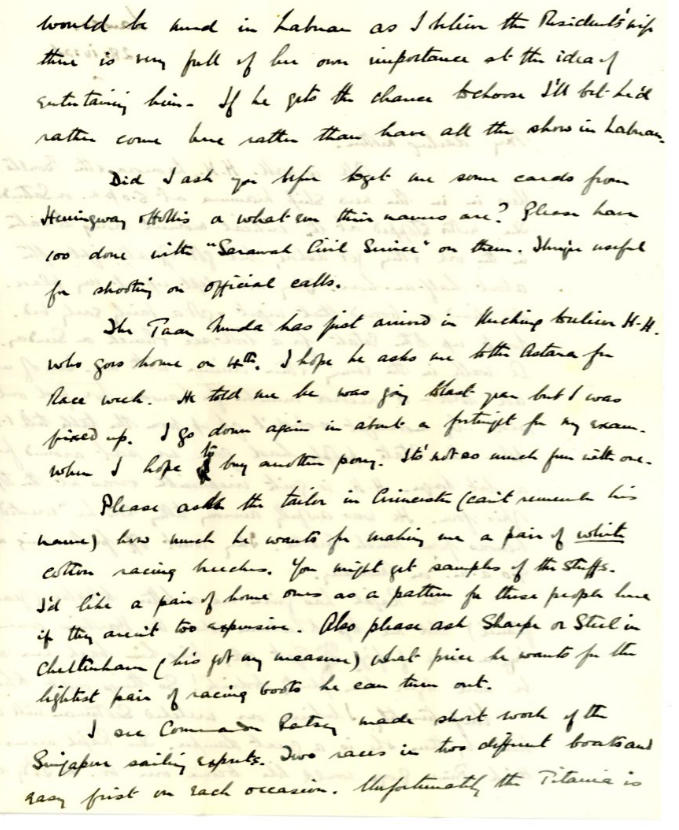 would be used in Labuan as I believe the Residents' wife
there is very full of her own importance at the idea of
entertaining him. If he gets the chance to choose I'll bet he'd
rather come here rather than have all the show in Labuan.
Did I ask you before to get me some cards from
Hemingway & Hollis or whatever their names are? Please have
100 done with "Sarawak Civil Service" on them. useful
for shooting on official calls.
The Tuan Muda has just arrived in Kuching to relieve H.H.
who goes home on 4th. I hope he asks me to the Astana for
Race week. He told me he was going to last year but I was
fixed up. I go down again in about a fortnight for my exam.
when I hope to buy another pony. It's not so much fun with one.
Please ask the tailor in Cirencester (can't remember his
name) how much he wants for making me a pair of white
cotton racing breeches. You might get samples of the stuffs.
I'd like a pair of home ones as a pattern for these people here
if they aren't too expensive. Also please ask Sharpe or Steel in
Cheltenham (he's got my measure) what price he wants for the
lightest pair of racing boots he can turn out.
I see Commander Ratsey made short work of the
Singapore sailing experts. Two races in two different boats and
easy first on each occasion. Unfortunately the Titania is